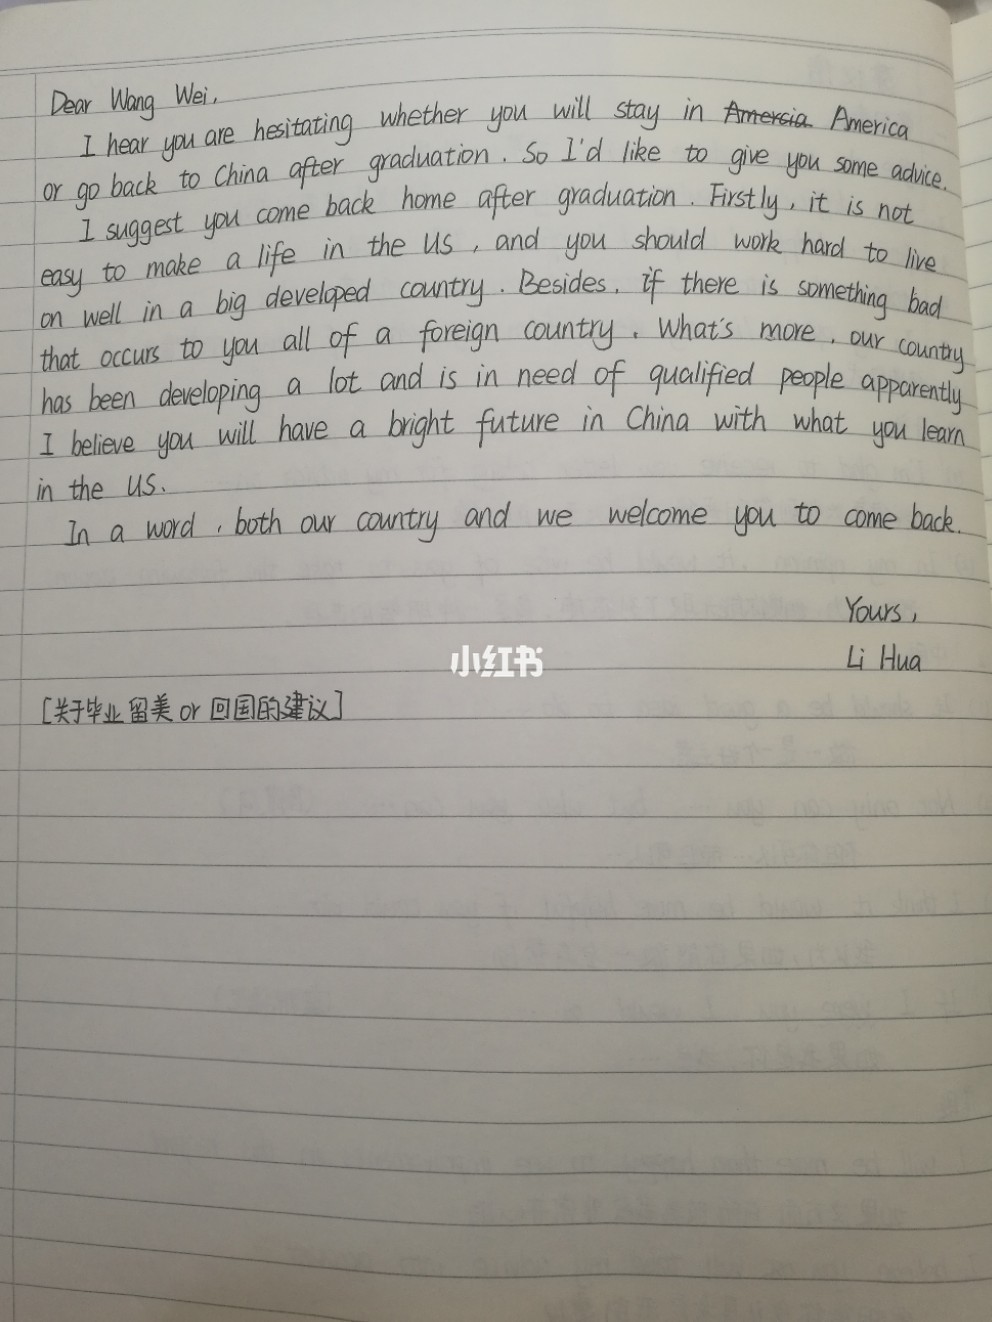 Dear Wang Wei,
I hear you are hesitating whether you will stay in Amersia America
or go back to China after graduation. So I'd like to give you some advice.
I suggest you come back home after graduation. Firstly, it is not
easy to make a life in the US, and you should work hard to live
on well in a big developed country. Besides, if there is something bad
that occurs to you all of a foreign country. What's more, our country
has been developing a lot and is in need of qualified people apparently
I believe you will have a bright future in China with what you learn
in the US.
In a word, both our country and we welcome you to come back.
Yours,
Li Hua
小红书
[关于毕业留美or回国的建议]